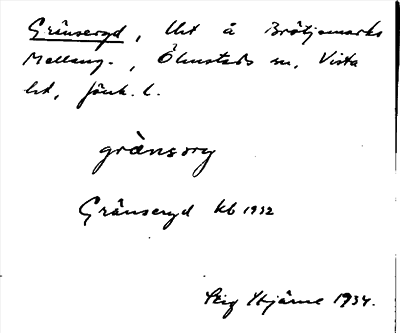 Gränseryd, lht å Brötjemarks
Mellang., Ölmstads sn, Vista
hd, Jönk. l.
gränsery
Gränseryd kb 1932
Stig Ytjärne 1934.